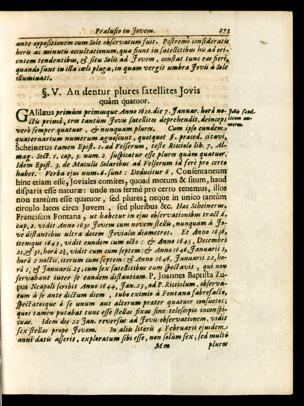 Prælusio in Jovem. 273
ante oppositionem cum Sole observatum fuit. Postremò consideratis
horis ac minutis occultationum, quæ fiunt in satellitibus hic ad ori-
entem tendentibus, & situ Solis ad Jovem, constat tunc eas fieri,
quando sunt in illo cæli plaga, in quam vergit umbra Jovis à Sole
illuminati.
§. V. An dentur plures satellites Jovis
quàm quatuor.
GAlilæus primùm primusque Anno 1610. die 7. Januar. horâ no-
ctis primâ, tres tantùm Jovis satellites deprehendit, deinceps
verò semper quatuor, & nunquam plures. Cum ipso eundem
quaternarium numerum agnoscunt, quotquot §. præced. citavi.
Scheinerus tamen Epist. 3. ad Velserum, teste Ricciolo lib. 7. Al-
mag. Sect. 1. cap. 3. num. 2. suspicatur esse plures quàm quatuor.
Idem Epist. 3. de Maculis Solaribus ad Velserum id ferè pro certo
habet. Verba ejus num. 6. sunt: Deducitur 6. Consentaneum
hinc etiam esse, Joviales comites, quoad motum & situm, haud
disparis esse naturæ: unde nos fermè pro certo tenemus, illos
non tantùm esse quatuor, sed plures; neque in unico tantùm
circulo latos circa Jovem, sed pluribus &c. Hæc Scheinerus.
Franciscus Fontana, ut habetur in ejus observationibus tract. 6.
cap. 2. vidit Anno
itemque 1643, vidit eundem cum octo: & Anno 1645, Decembris
servabant inter se eandem distantiam. P. Joannes Baptista Zu-
pus Neapoli scribit Anno 1644, Jan. 23, ad P. Ricciolum, observa-
tum à se ante dictum diem, tubo eximio à Fontana fabrefacto,
spectatosque à se unum aut alterum præter quatuor consuetos;
quos tamen putabat tunc esse stellas fixas sine telescopio inconspi-
cuas. Idem die 22 Jan. reversus ad Jovis observationem, vidit
sex stellas prope Jovem. In aliis literis 4 Februarii ejusdem
anni datis asserit, exploratum sibi esse, non solùm sex, sed multò
Mm plures